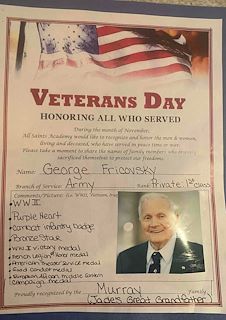 VETERANS DAY
HONORING ALL WHO SERVED
During the month of November,
All Saints Academy would like to recognize and honor the men & women,
living and deceased, who have served in peace time or war.
Please take a moment to share the names of family members who bravely
sacrificed themselves to protect our freedoms.
Name: George Fricovsky
Branch of Service: Army Rank: Private 1st Class
Comments/Picture: (i.e. WWII, Vietnam,
• WW II
• Purple Heart
• Combat infantry badge
• Bronze Star
• WW II Victory medal
• French Legion of Honor medal
• American Theater Service medal
• Good Conduct medal
• European African Middle Eastern
Campaign medal
Proudly recognized by the Murray Family
(Jade's Great Grandfather)